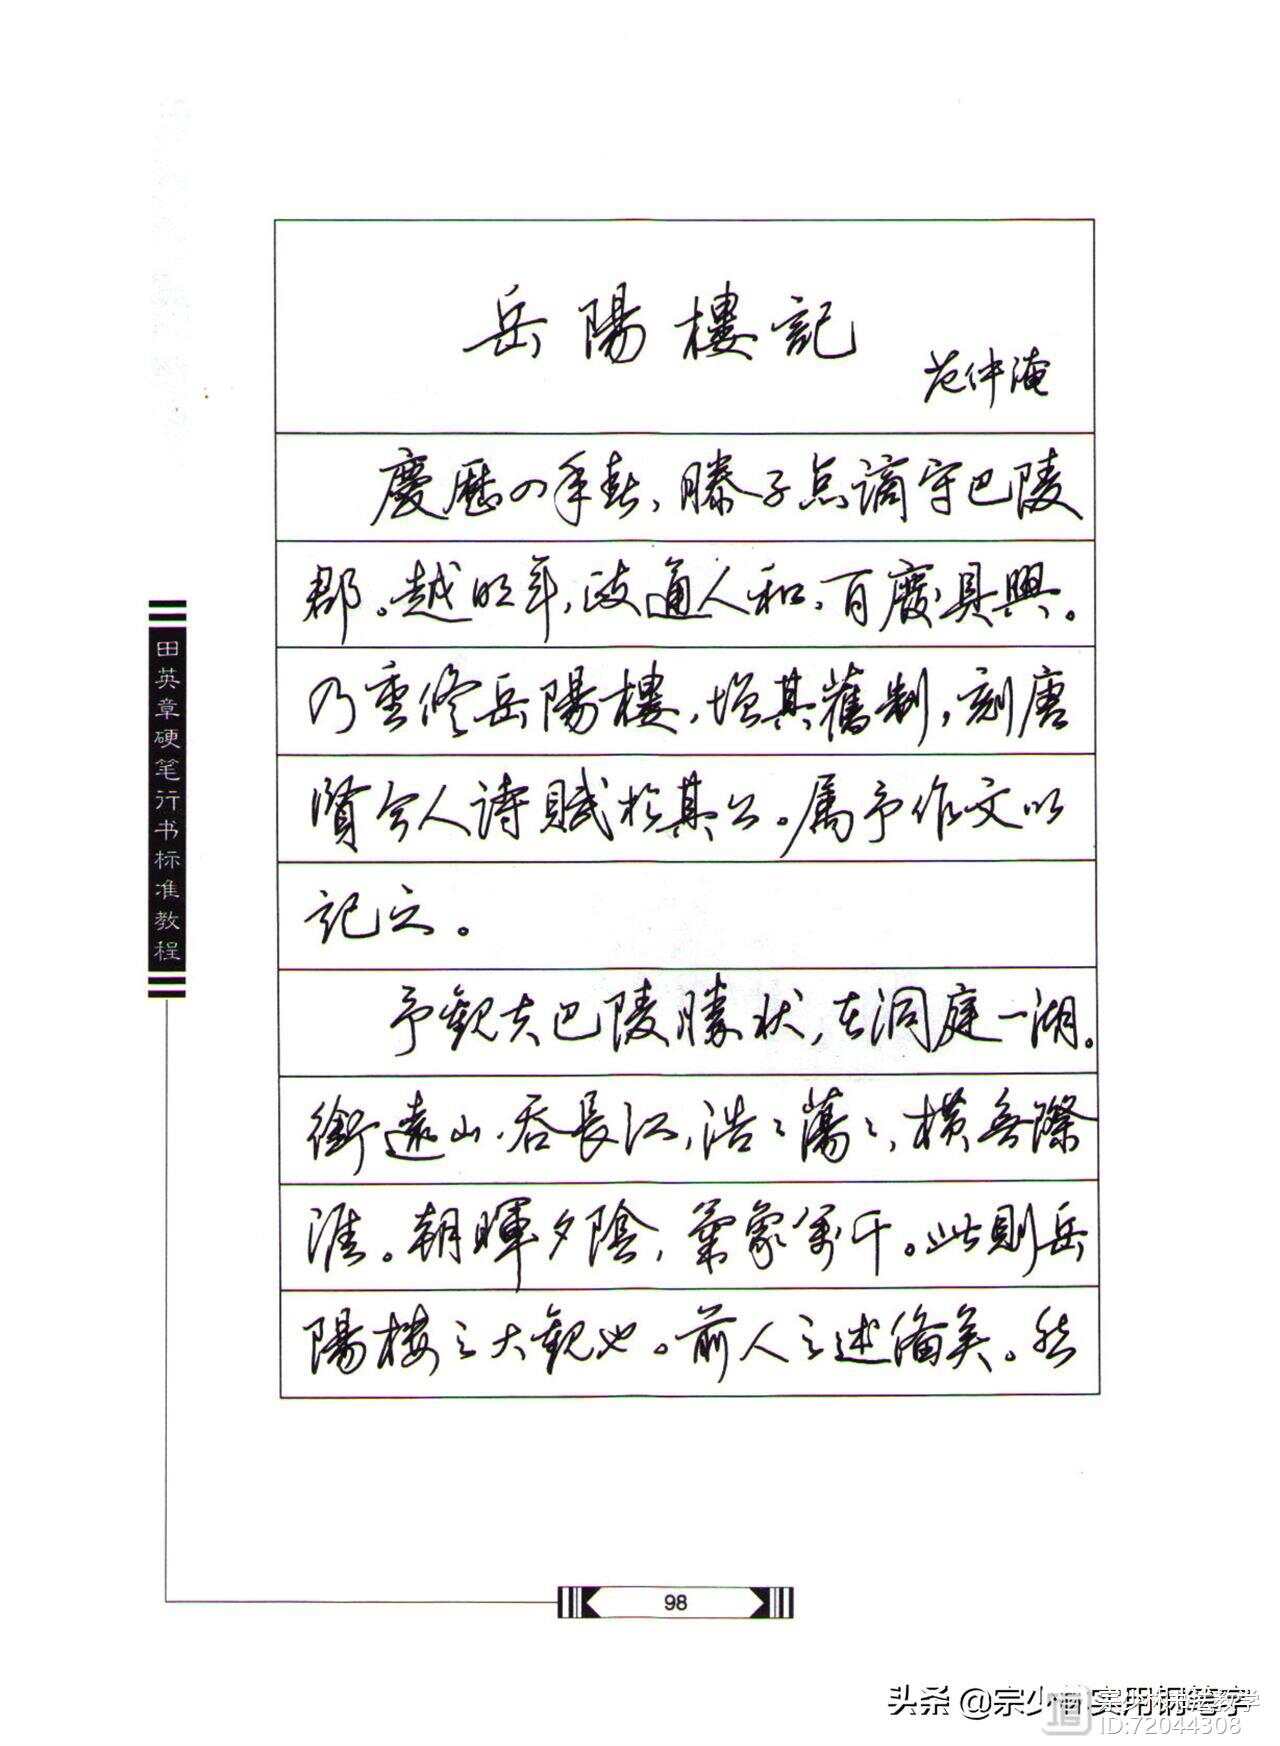 岳陽樓記
范仲淹
慶歷四年春，滕子京謫守巴陵
郡。越明年，政通人和，百廢具興。
乃重修岳陽樓，增其舊制，刻唐
賢今人詩賦於其上。属予作文以
記之。
予觀夫巴陵勝狀，在洞庭一湖。
銜遠山，吞長江，浩〻蕩〻，横無際
涯。朝暉夕陰，氣象萬千。此則岳
陽樓之大觀也。前人之述備矣。然
田英章硬笔行书标准教程
98
头条 @宗少
ID:72044308